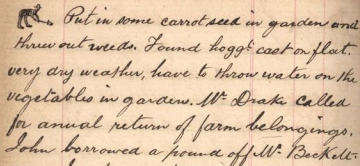 Put in some carrot seed in garden and
threw out weeds. Found hogg^t cast on flat.
very dry weather, have to throw water on the
vegetables in garden. Mr Drake called
for anual return of farm belongings.
John borrowed a pound off Mr Beckett